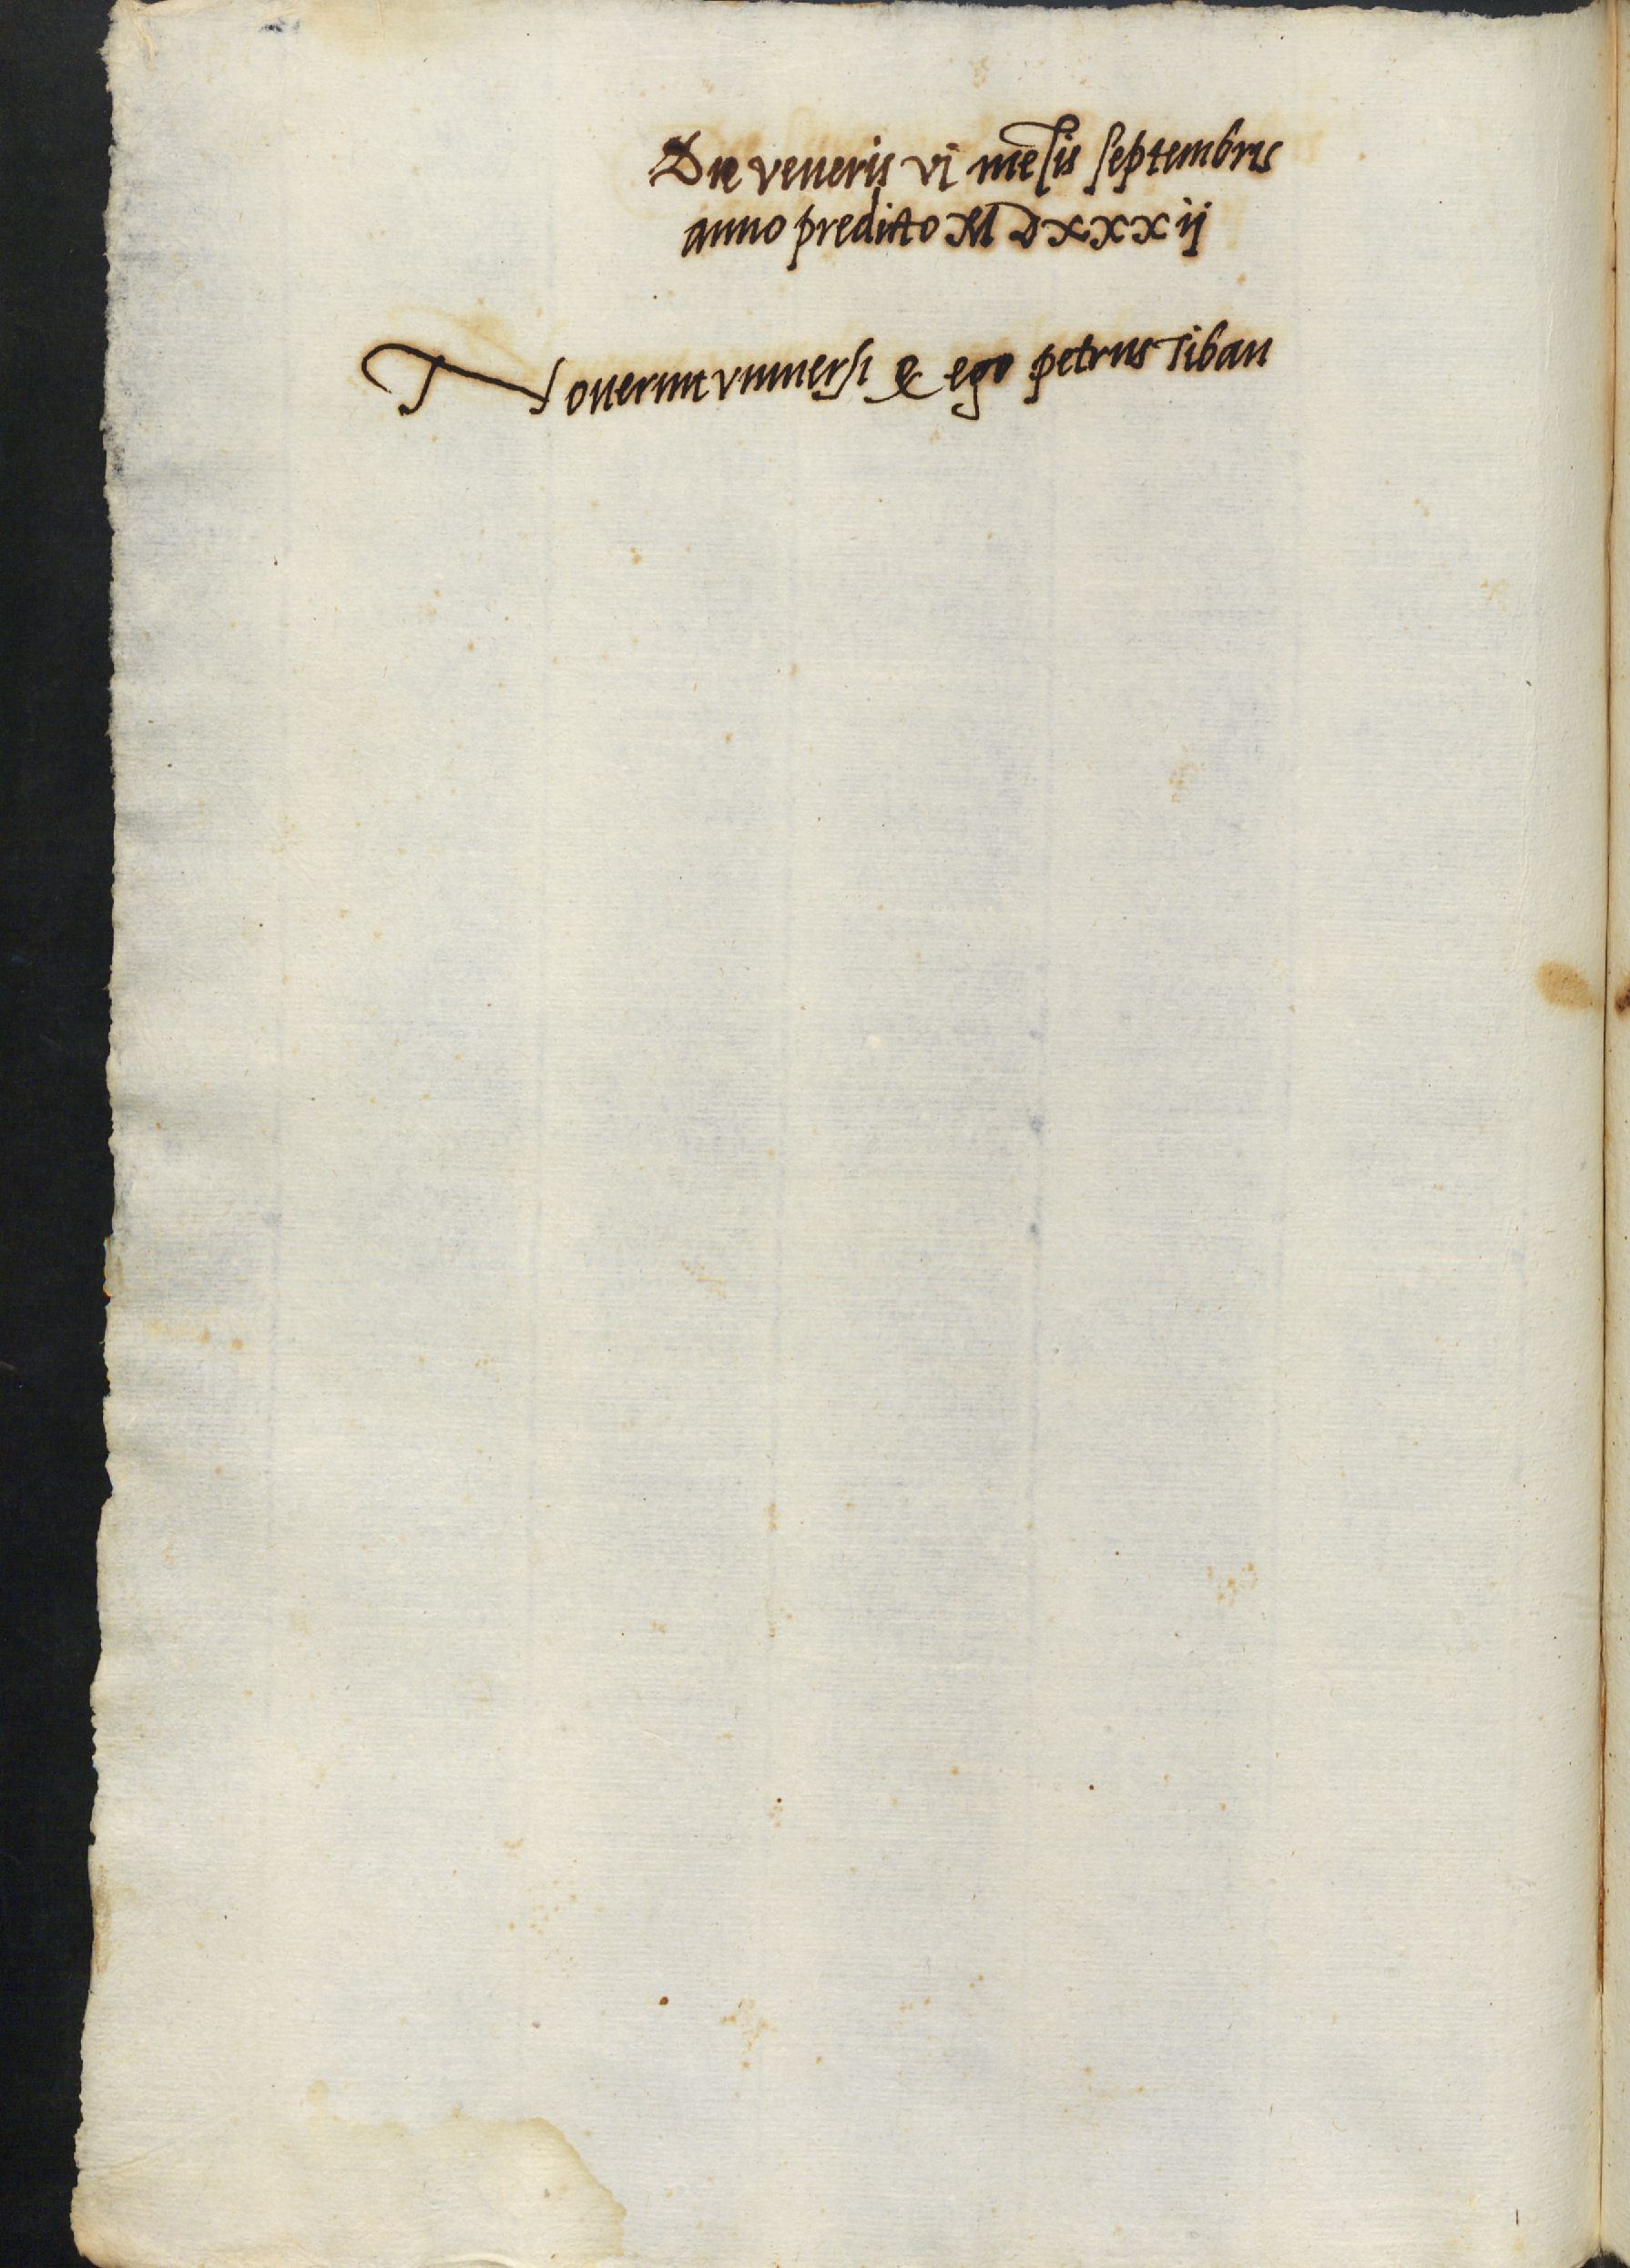 Die veneris vj mẽsis septembris
anno predicto M D x x x ij
Noverint vniuersi ꝙ ego petrus Tiban